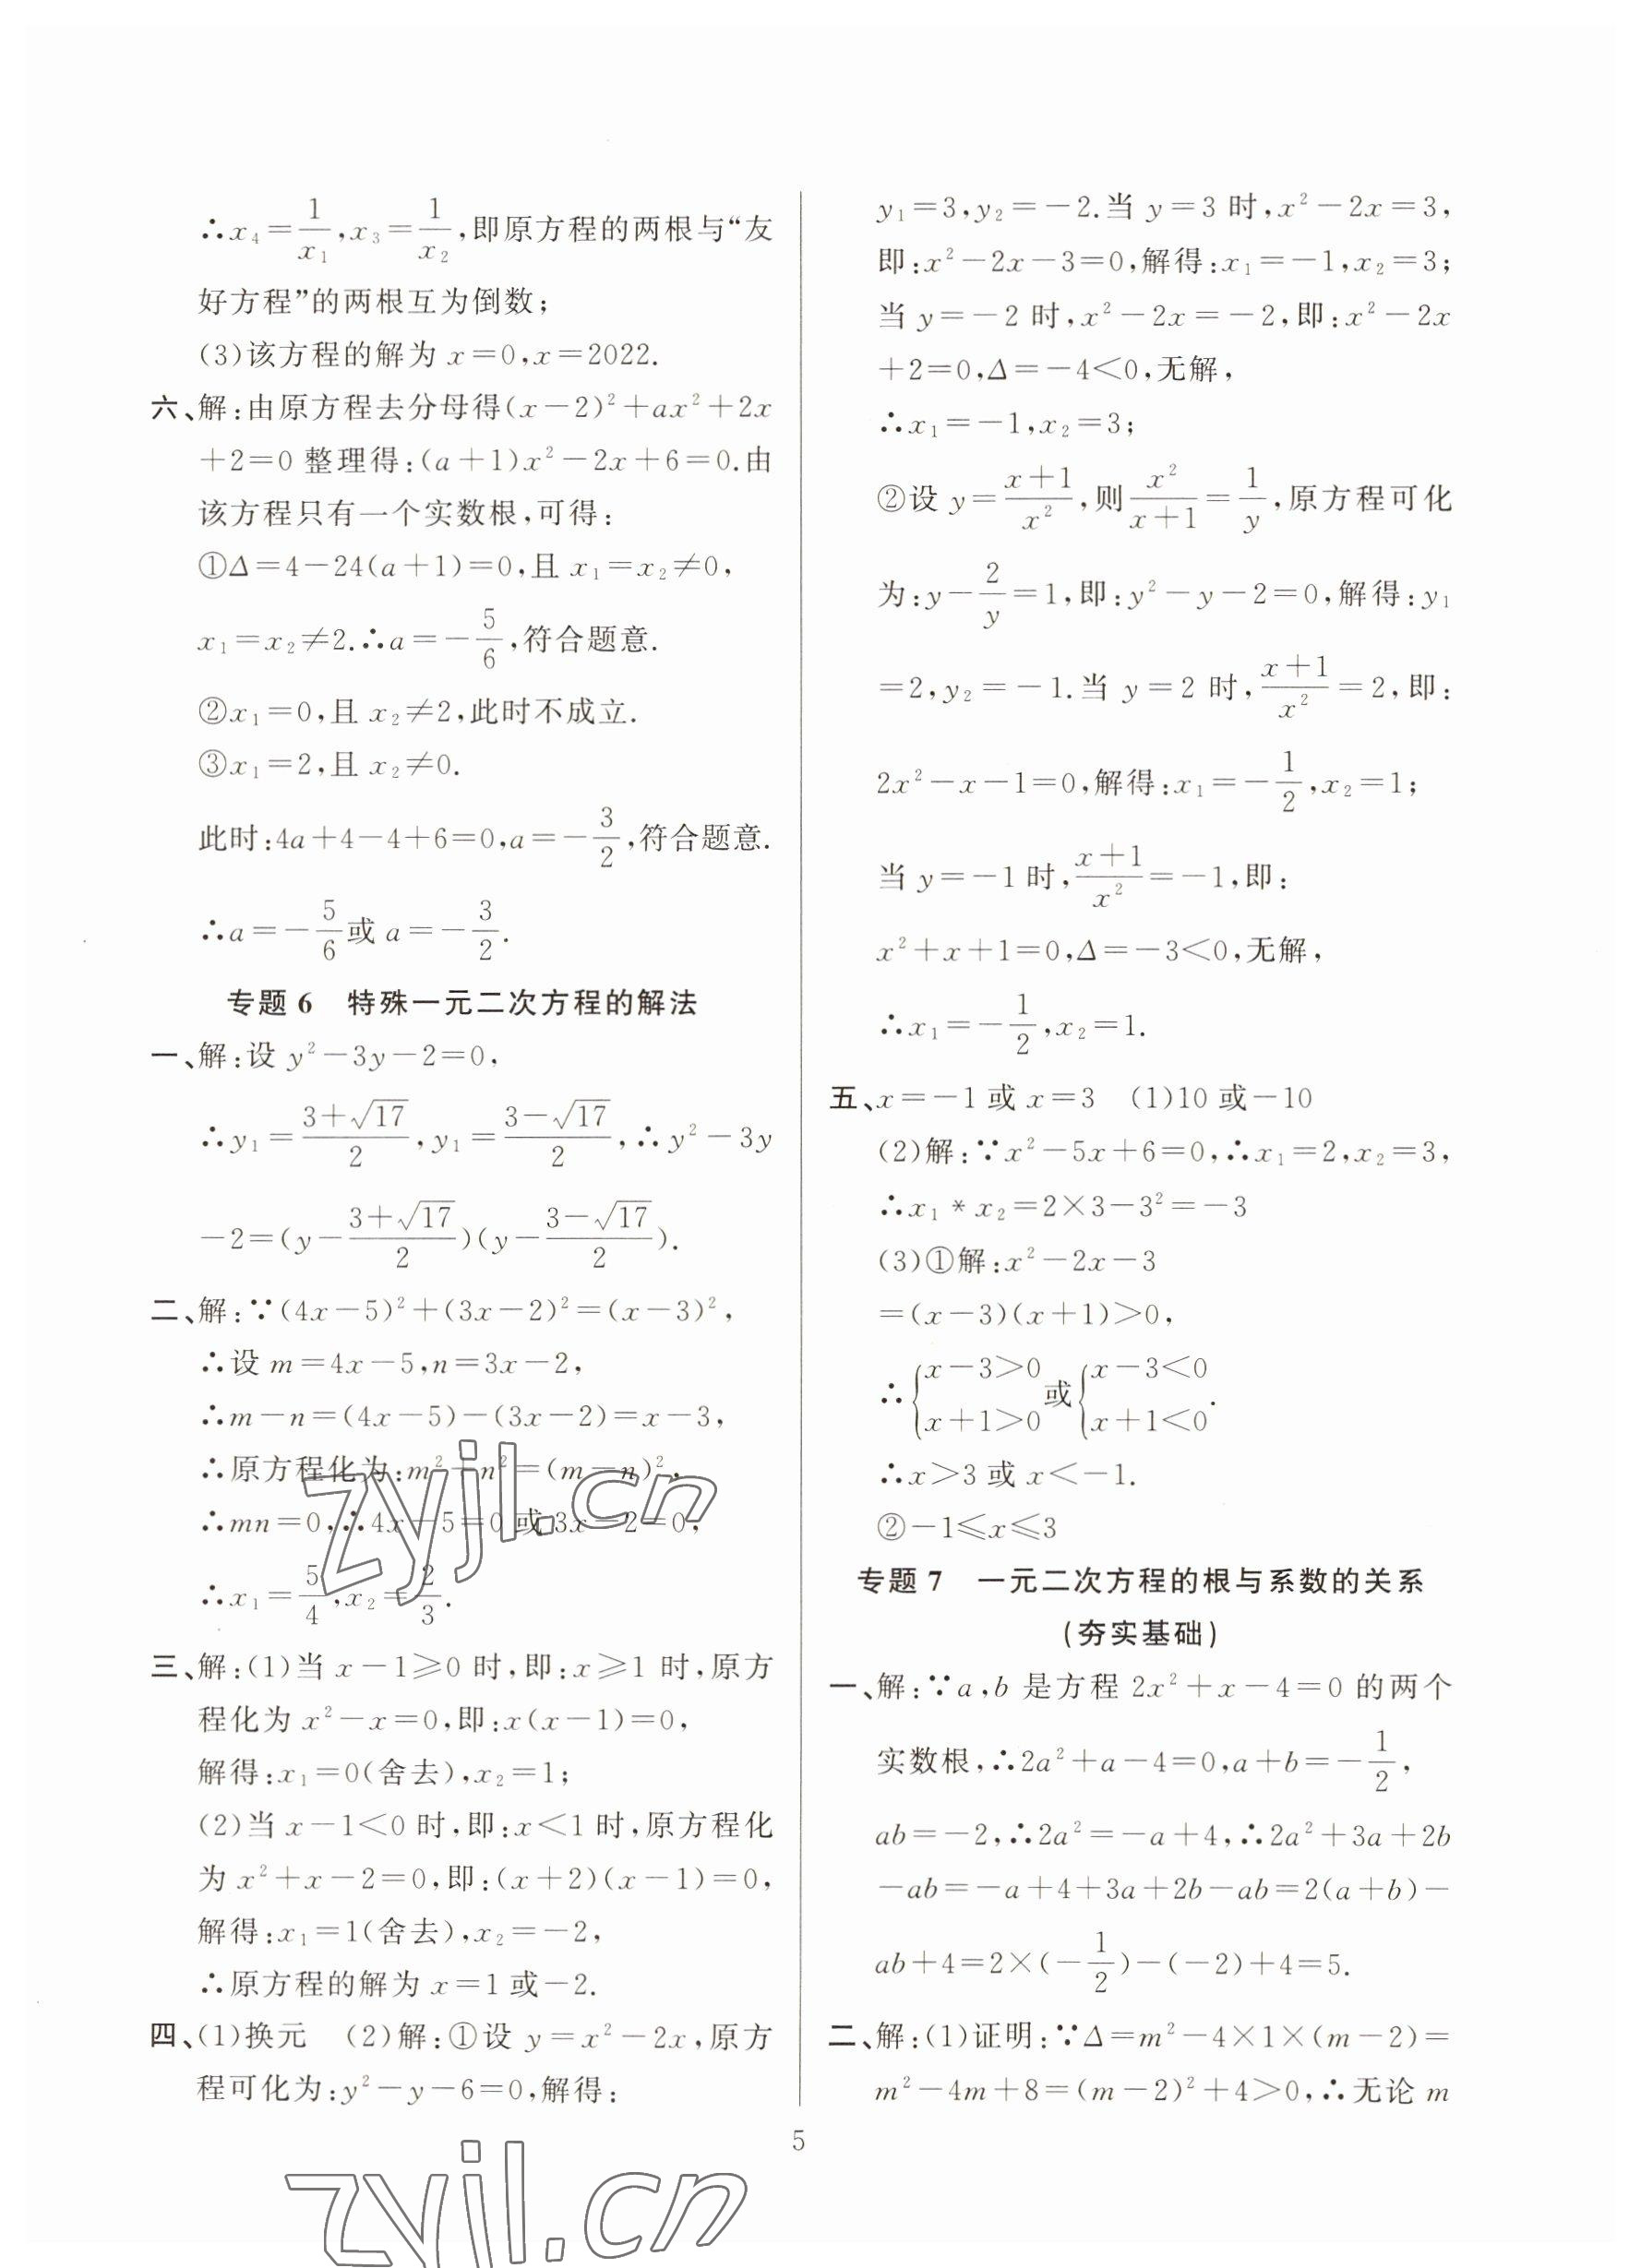 ∴x₄=1/x₁,x₃=1/x₂,即原方程的两根与“友
好方程”的两根互为倒数;
(3)该方程的解为 x=0,x=2022.
六、解:由原方程去分母得(x-2)²+ax²+2x
+2=0 整理得:(a+1)x²-2x+6=0.由
该方程只有一个实数根,可得:
①Δ=4-24(a+1)=0,且 x₁=x₂≠0,
x₁=x₂≠2.∴a=-5/6,符合题意.
②x₁=0,且 x₂≠2,此时不成立.
③x₁=2,且 x₂≠0.
此时:4a+4-4+6=0,a=-3/2,符合题意.
∴a=-5/6或 a=-3/2.
专题 6 特殊一元二次方程的解法
一、解:设 y²-3y-2=0,
∴y₁=(3+√17)/2,y₁=(3-√17)/2,∴y²-3y
-2=(y-(3+√17)/2)(y-(3-√17)/2).
二、解:∵(4x-5)²+(3x-2)²=(x-3)²,
∴设 m=4x-5,n=3x-2,
∴m-n=(4x-5)-(3x-2)=x-3,
∴原方程化为:m²+n²=(m-n)²,
∴mn=0,∴4x-5=0 或 3x-2=0,
∴x₁=5/4,x₂=2/3.
三、解:(1)当 x-1≥0 时,即:x≥1 时,原方
程化为 x²-x=0,即:x(x-1)=0,
解得:x₁=0(舍去),x₂=1;
(2)当 x-1<0 时,即:x<1 时,原方程化
为 x²+x-2=0,即:(x+2)(x-1)=0,
解得:x₁=1(舍去),x₂=-2,
∴原方程的解为 x=1 或-2.
四、(1)换元 (2)解:①设 y=x²-2x,原方
程可化为:y²-y-6=0,解得:
y₁=3,y₂=-2.当 y=3 时,x²-2x=3,
即:x²-2x-3=0,解得:x₁=-1,x₂=3;
当 y=-2 时,x²-2x=-2,即:x²-2x
+2=0,Δ=-4<0,无解,
∴x₁=-1,x₂=3;
②设 y=(x+1)/x²,则x²/(x+1)=1/y,原方程可化
为:y-2/y=1,即:y²-y-2=0,解得:y₁
=2,y₂=-1.当 y=2 时,(x+1)/x²=2,即:
2x²-x-1=0,解得:x₁=-1/2,x₂=1;
当 y=-1 时,(x+1)/x²=-1,即:
x²+x+1=0,Δ=-3<0,无解,
∴x₁=-1/2,x₂=1.
五、x=-1 或 x=3 (1)10 或-10
(2)解:∵x²-5x+6=0,∴x₁=2,x₂=3,
∴x₁*x₂=2×3-3²=-3
(3)①解:x²-2x-3
=(x-3)(x+1)>0,
∴{x-3>0 x+1>0 或{x-3<0 x+1<0.
∴x>3 或 x<-1.
②-1≤x≤3
专题 7 一元二次方程的根与系数的关系
(夯实基础)
一、解:∵a,b 是方程 2x²+x-4=0 的两个
实数根,∴2a²+a-4=0,a+b=-1/2,
ab=-2,∴2a²=-a+4,∴2a²+3a+2b
-ab=-a+4+3a+2b-ab=2(a+b)-
ab+4=2×(-1/2)-(-2)+4=5.
二、解:(1)证明:∵Δ=m²-4×1×(m-2)=
m²-4m+8=(m-2)²+4>0,∴无论 m
5
zyjl.cn
zyjl.cn